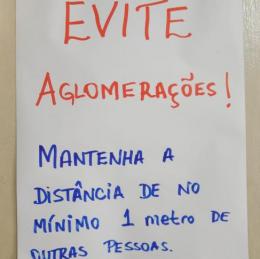 EVITE
AGLOMERAÇÕES!
MANTENHA A
DISTÂNCIA DE NO
MÍNIMO 1 metro DE
OUTRAS PESSOAS.